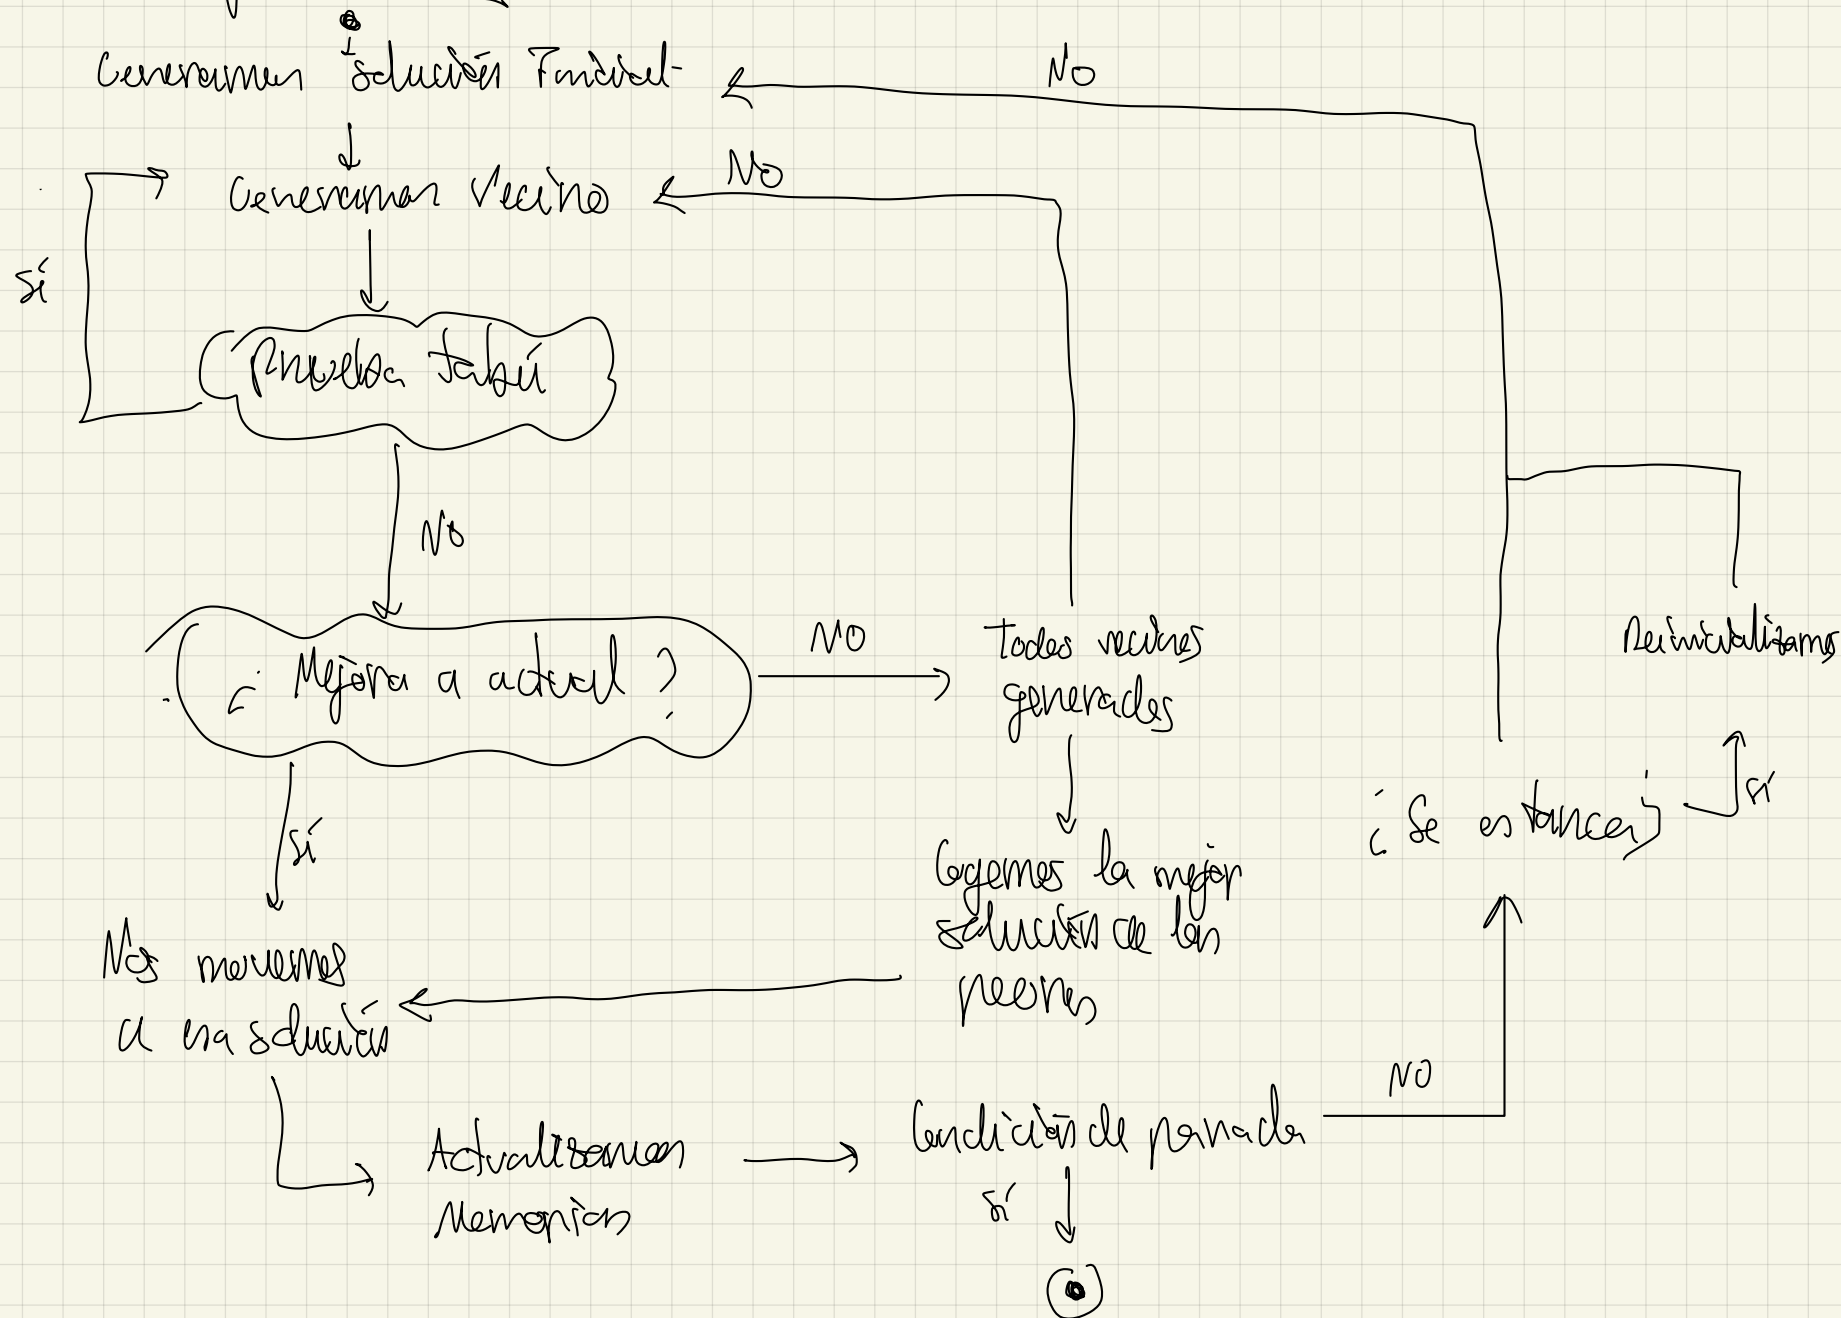 Generamos solución Inicial
No
Generamos Vecino
No
Sí
Prueba tabú
No
¿Mejora a actual?
NO
Todos vecinos
generados
Reinicializamos
Sí
¿Se estanca?
Sí
Cogemos la mejor
solución de las
peores
Nos movemos
a esa solución
NO
Condición de parada
Actualizamos
Memorias
Sí